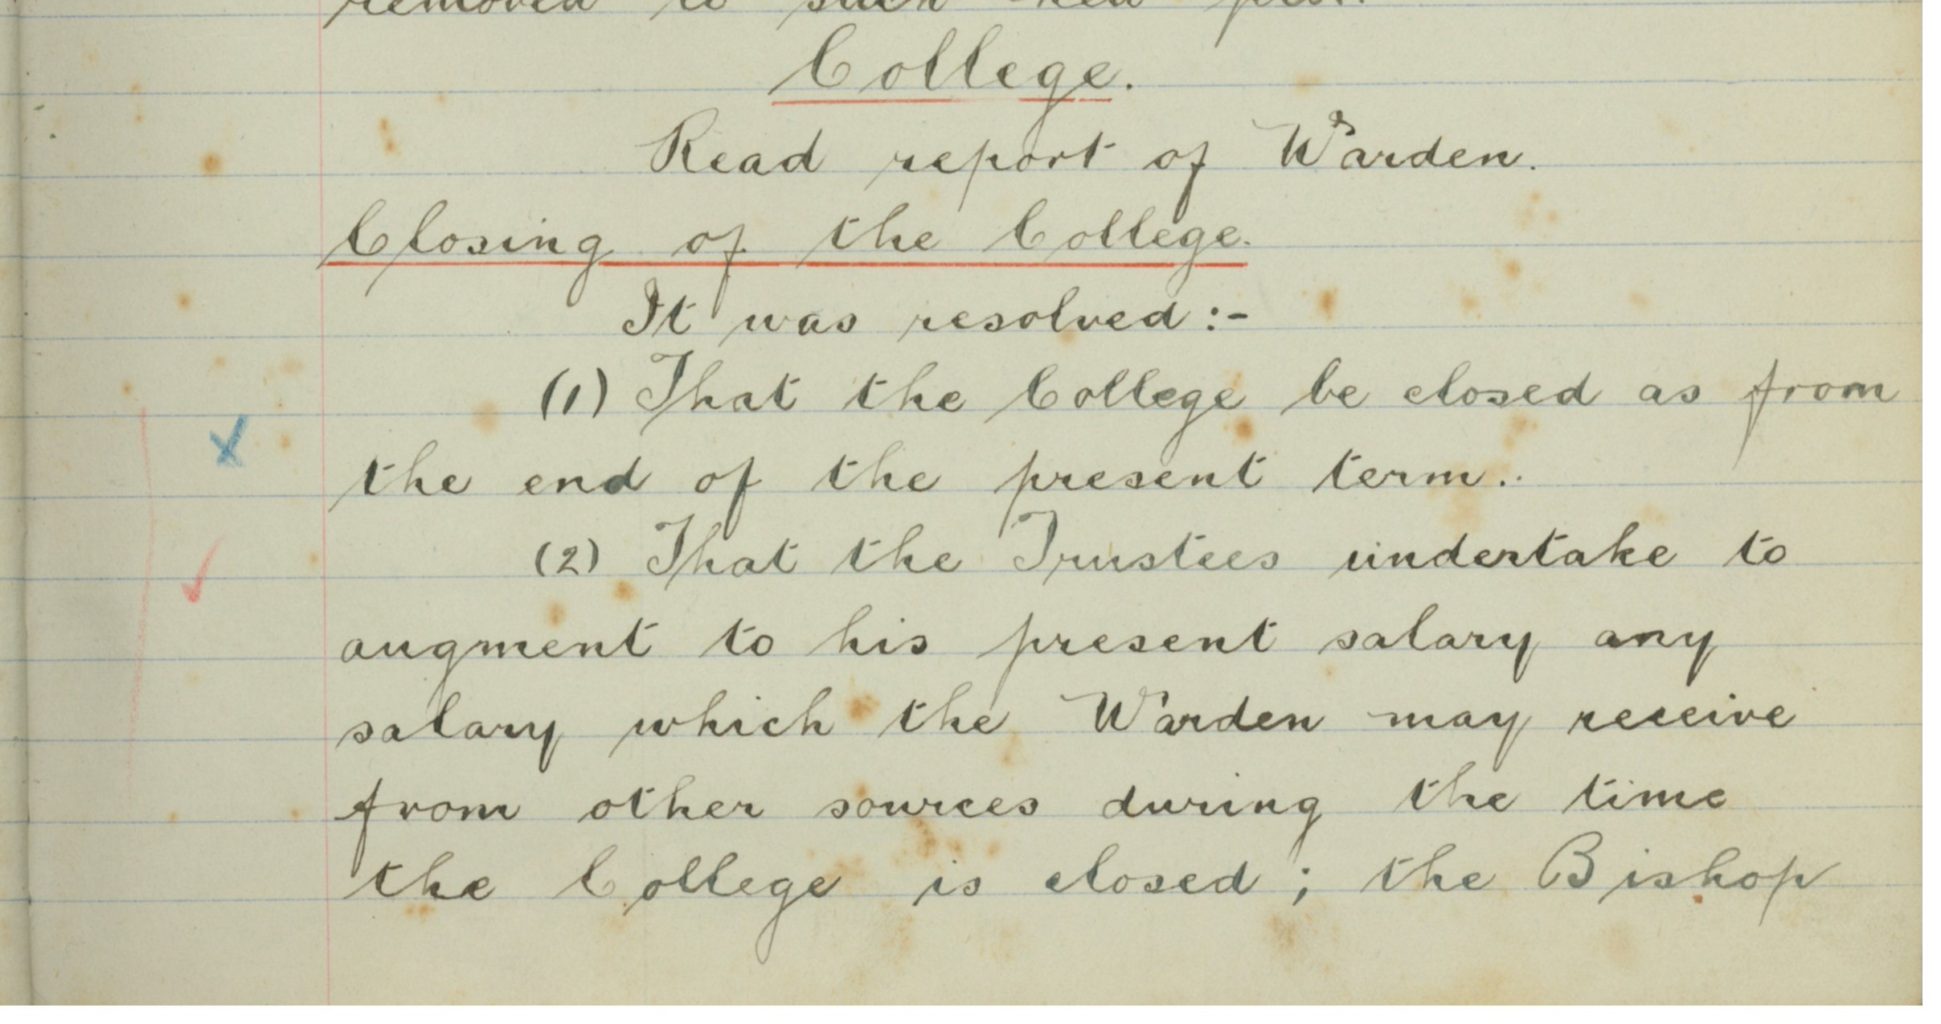 removed to such new
College.
Read report of Warden.
Closing of the College.
It was resolved :-
(1) That the College be closed as from
the end of the present term..
(2) That the Trustees undertake to
augment to his present salary any
salary which the Warden may receive
from other sources during the time
the College is closed ; the Bishop